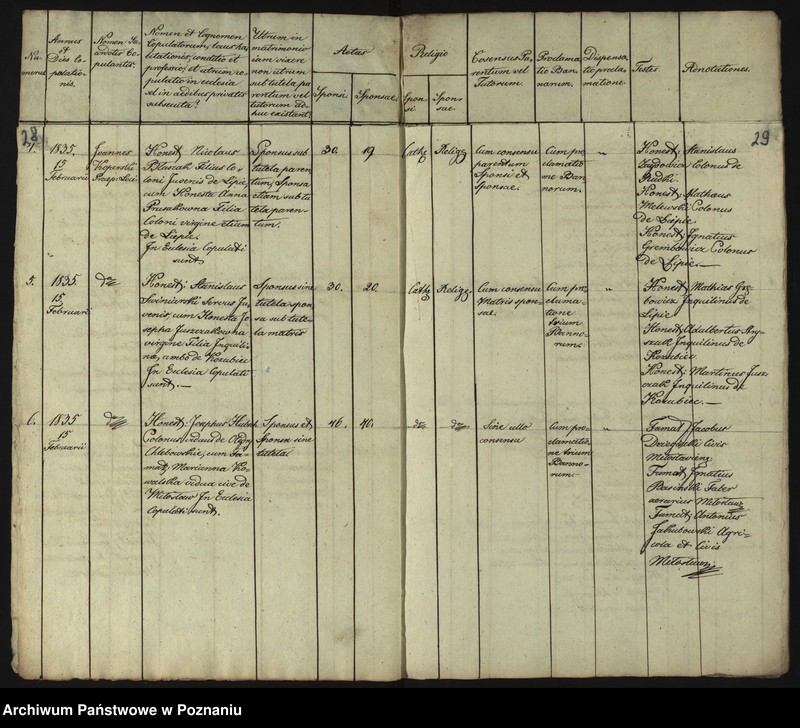 28
29
Numerus
Annus
et
Dies Co-
pulatio-
nis.
Nomen Sa-
cerdotis Co-
pulantis.
Nomen et Cognomen
Copulatorum, locus ha-
bitationis, conditio et
professio, et utrum co-
pulatio in ecclesia
vel in aedibus privatis
subsecuta?
Utrum in
matrimonio
iam vixer
non utrum
sub tutela pa-
rentum vel
tutorum ad-
huc existant.
Aetas
Sponsi.
Sponsae.
Religio
Spon-
si
Spon-
sae.
Cosensus Pa-
rentum vel
Tutorum.
Proclama-
tio Ban-
norum.
Dispensa-
tio procla-
matione
Testes
Renotationes.
1835.
15
Februarii
Joannes
Koperski
Honest Nicolaus
Filius Co-
loni Juvenis de Lipie,
cum Honesta Anna
Prusakowna Filia
Coloni virgine etium
de Lipie.
In Eclesia Copulati
sunt
Sponsus sub
tutela paren-
tum, Sponsa
etiam sub tu
tela paren-
tum.
30.
19
Cath
Relig
Cum consensu
parentum
Sponsi et
Sponsae.
Cum pro-
clamatio
ne Ban-
norum.
"
Honest Stanislaus
Colonus de
Rudki.
Honest Mathaus
Melewski Colonus
de Lipie
Honest Ignatius
Grembowicz Colonus
de Lipie.—
5.
1835
15
Februarii
dto
Honest; Stanislaus
Swiniarski Servus Ju-
venis, cum Honesta Jo-
sepha Juszczakowna
virgine Filia Inquili-
na, ambo de Kozubiec
In Ecclesia Copulati
sunt.—
Sponsus sine
tutela spon-
sa sub tute-
la matris
30.
20.
Cath
Relig
Cum consensu
Matris spon-
sae.
Cum pro-
clama-
tione
trium
Banno-
rum.
"
Honest; Mathias Gre-
bowicz Inquilinus de
Lipie
Honest Adalbertus
Inquilinus de
Kozubiec
Honest; Martinus Jusz-
czak Inquilinus de
Kozubiec.—
6.
1835
15
Februarii
dto
Honest; Josephus Hubch
Colonus viduus de
Chlebowskie, cum Fa-
mat; Marianna Ko-
walska vidua cive de
Miloslaw In Eclesia
Copulati sunt.
Sponsus et
Sponsa sine
tutela
46.
40.
dto
dto
Sine ullo
consensu
Cum pro-
clamatio
ne trium
Banno-
rum.
"
Famat; Jacobus
civis
Miloslaviens;
Famat; Ignatius
Basinski Faber
aerarius
Famat; Antonius
Jakubowski Agri-
cola et Civis
Archiwum Państwowe w Poznaniu